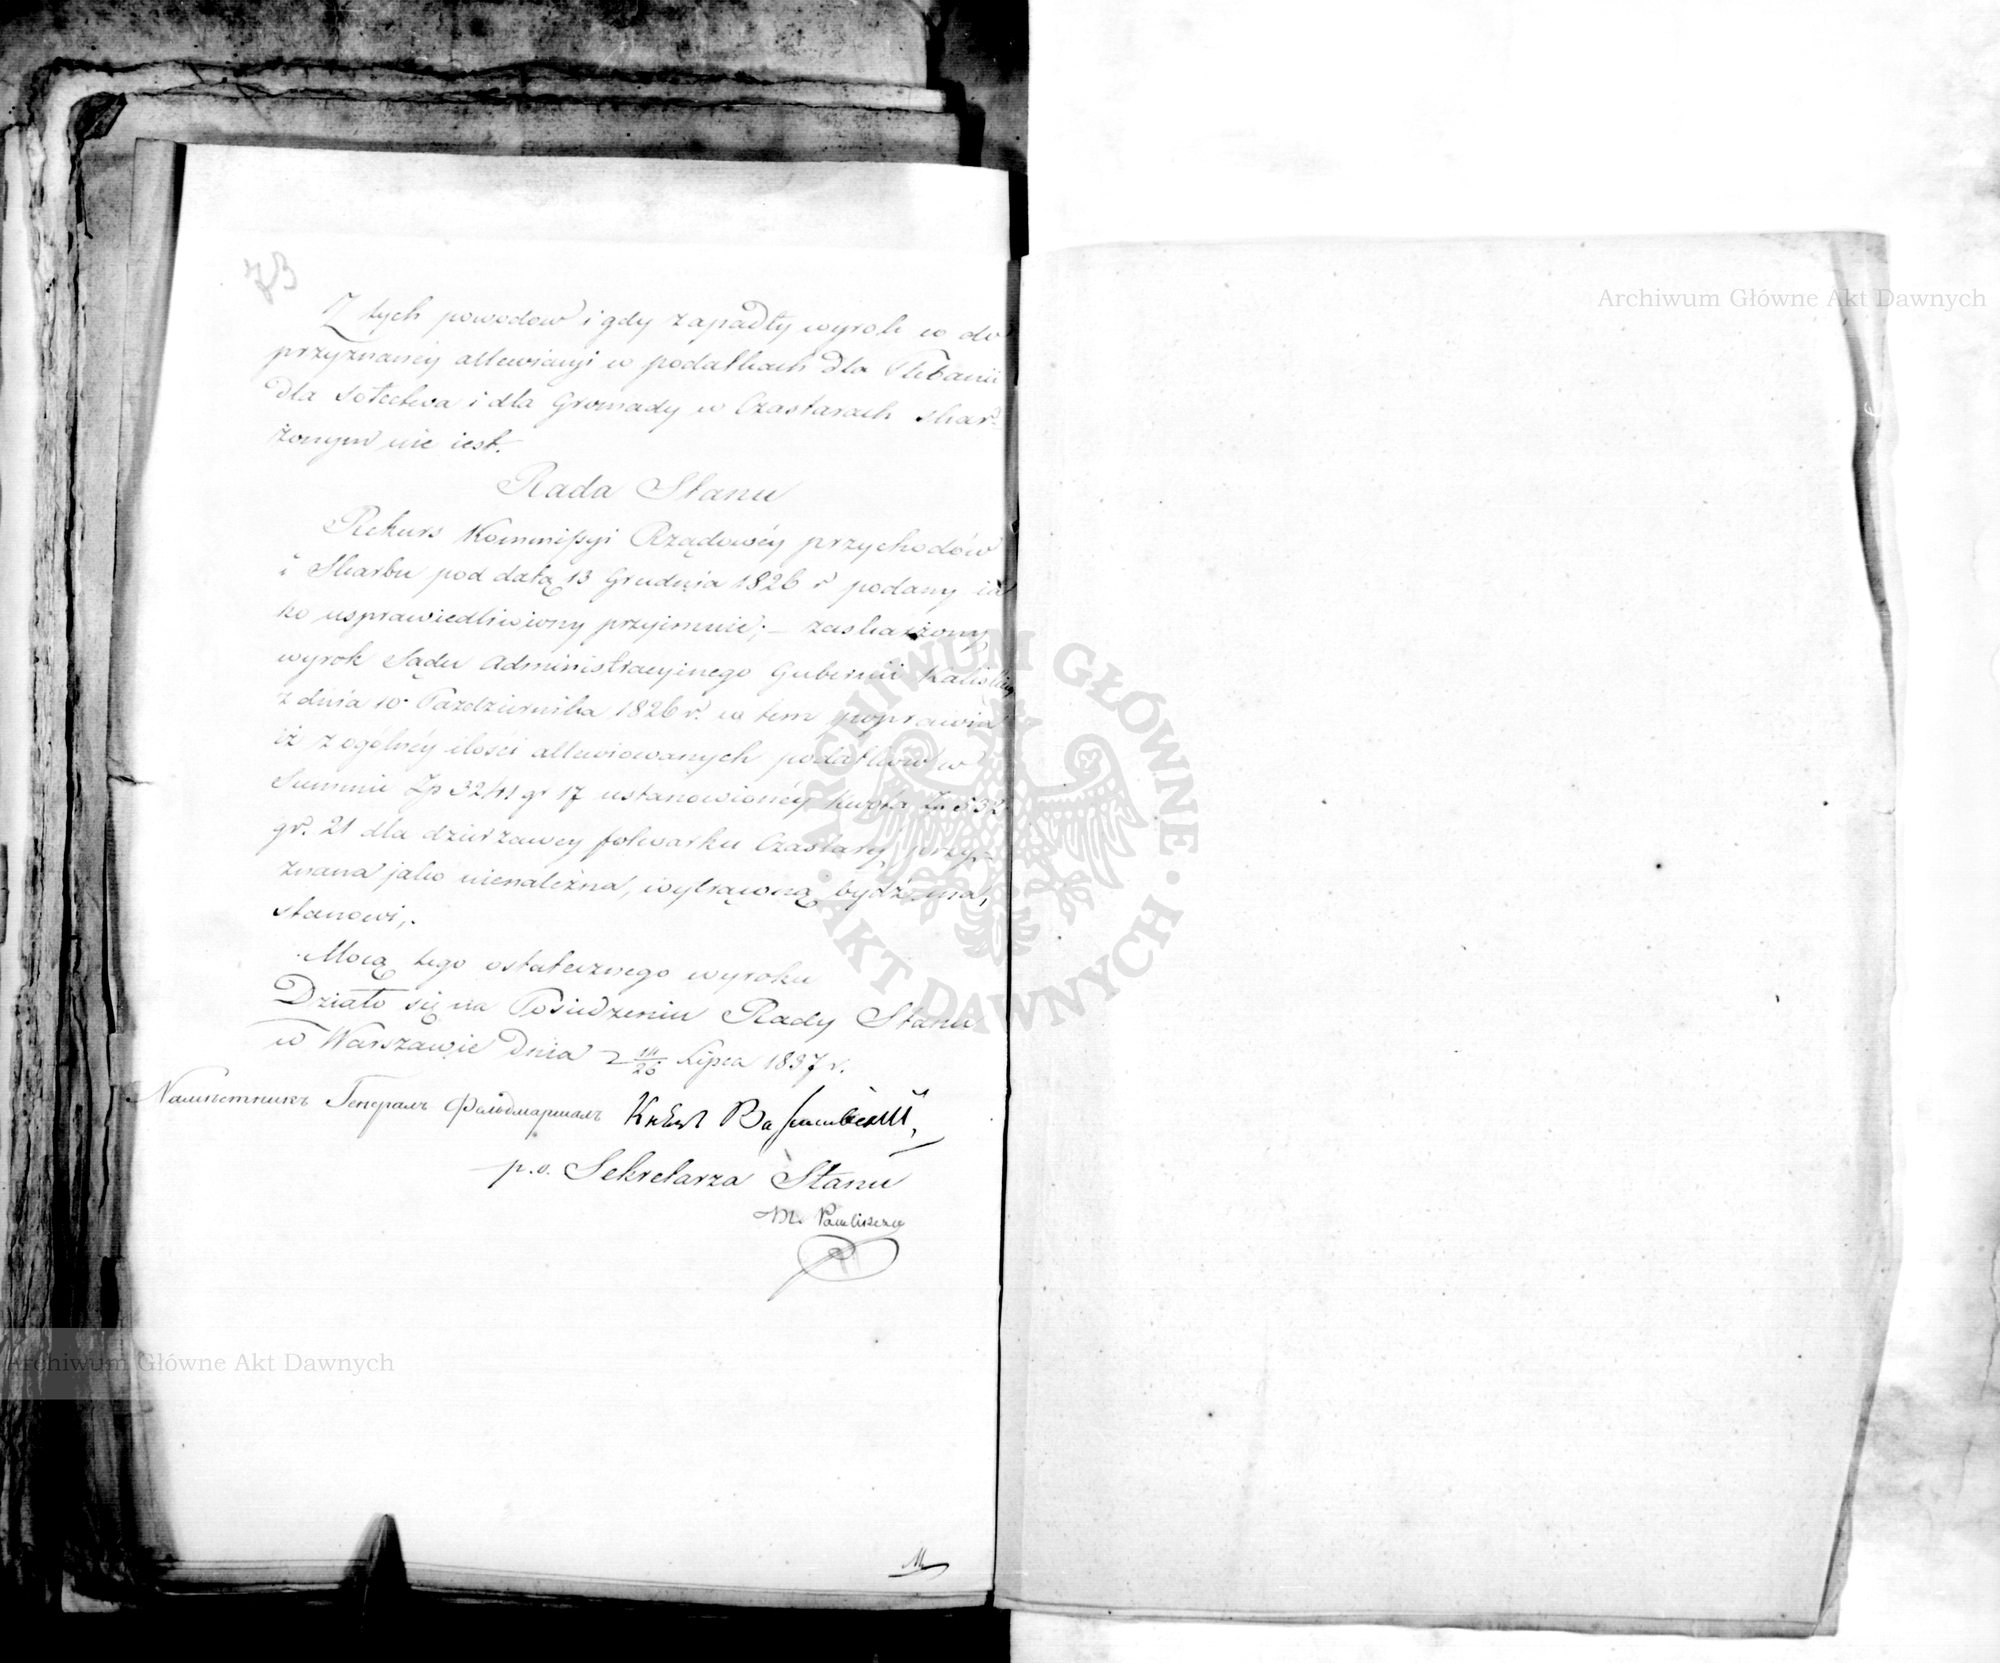 73
Z tych powodów i gdy zapadły wyrok co do
przyznanéy allewiacyi w podatkach dla Plebanii
dla Sołectwa i dla Gromady w Czastarach skar-
żonym nie iest.
Rada Stanu
Rekurs Kommissyi Rządowéy przychodów
i Skarbu pod datą 13 Grudnia 1826 r podany ia
ko usprawiedliwiony przyimuie; – zaskarżony
wyrok Sądu Administracyinego Gubernii Kaliskiey
z dnia 10 Pazdziernika 1826 r. w tem poprawia
iż z ogolnéy ilości allewiowanych podatków w
Summie Zp 3241 gr 17 ustanowionéy kwota Zp 532
gr. 21 dla dzierzawcy folwarku Czastary przy-
znana jako nienależna, wytrąconą bydź ma,
stanowi,.
Mocą tego ostatecznego wyroku
Działo się na Posiedzeniu Rady Stanu
w Warszawie Dnia 14/26 Lipca 1837 r.
Намѣстникъ Генералъ Фельдмаршалъ Князь Варшавскій,
p.o. Sekretarza Stanu
M. Pawliszczew
Archiwum Główne Akt Dawnych
Archiwum Główne Akt Dawnych
ARCHIWUM GŁÓWNE AKT DAWNYCH